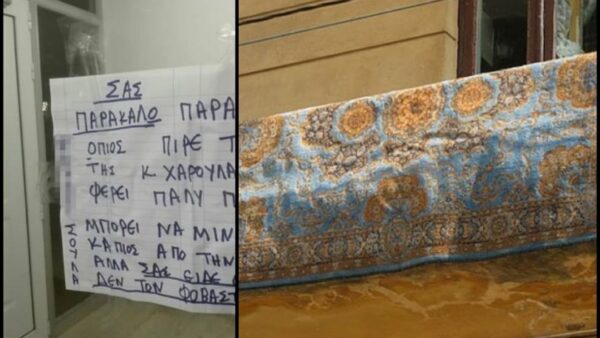 ΣΑΣ
ΠΑΡΑΚΑΛΟ ΠΑΡΑ
ΟΠΙΟΣ ΠΙΡΕ Τ
ΤΗΣ Κ ΧΑΡΟΥΛΑ
ΦΕΡΕΙ ΠΑΛΥ Π
ΜΠΟΡΕΙ ΝΑ ΜΙΝ
ΚΑΠΙΟΣ ΑΠΟ ΤΗΝ
ΑΛΛΑ ΣΑΣ ΕΙΔΕ
ΔΕΝ ΤΟΝ ΦΟΒΑΣΤ
ΣΟΥΛΑ